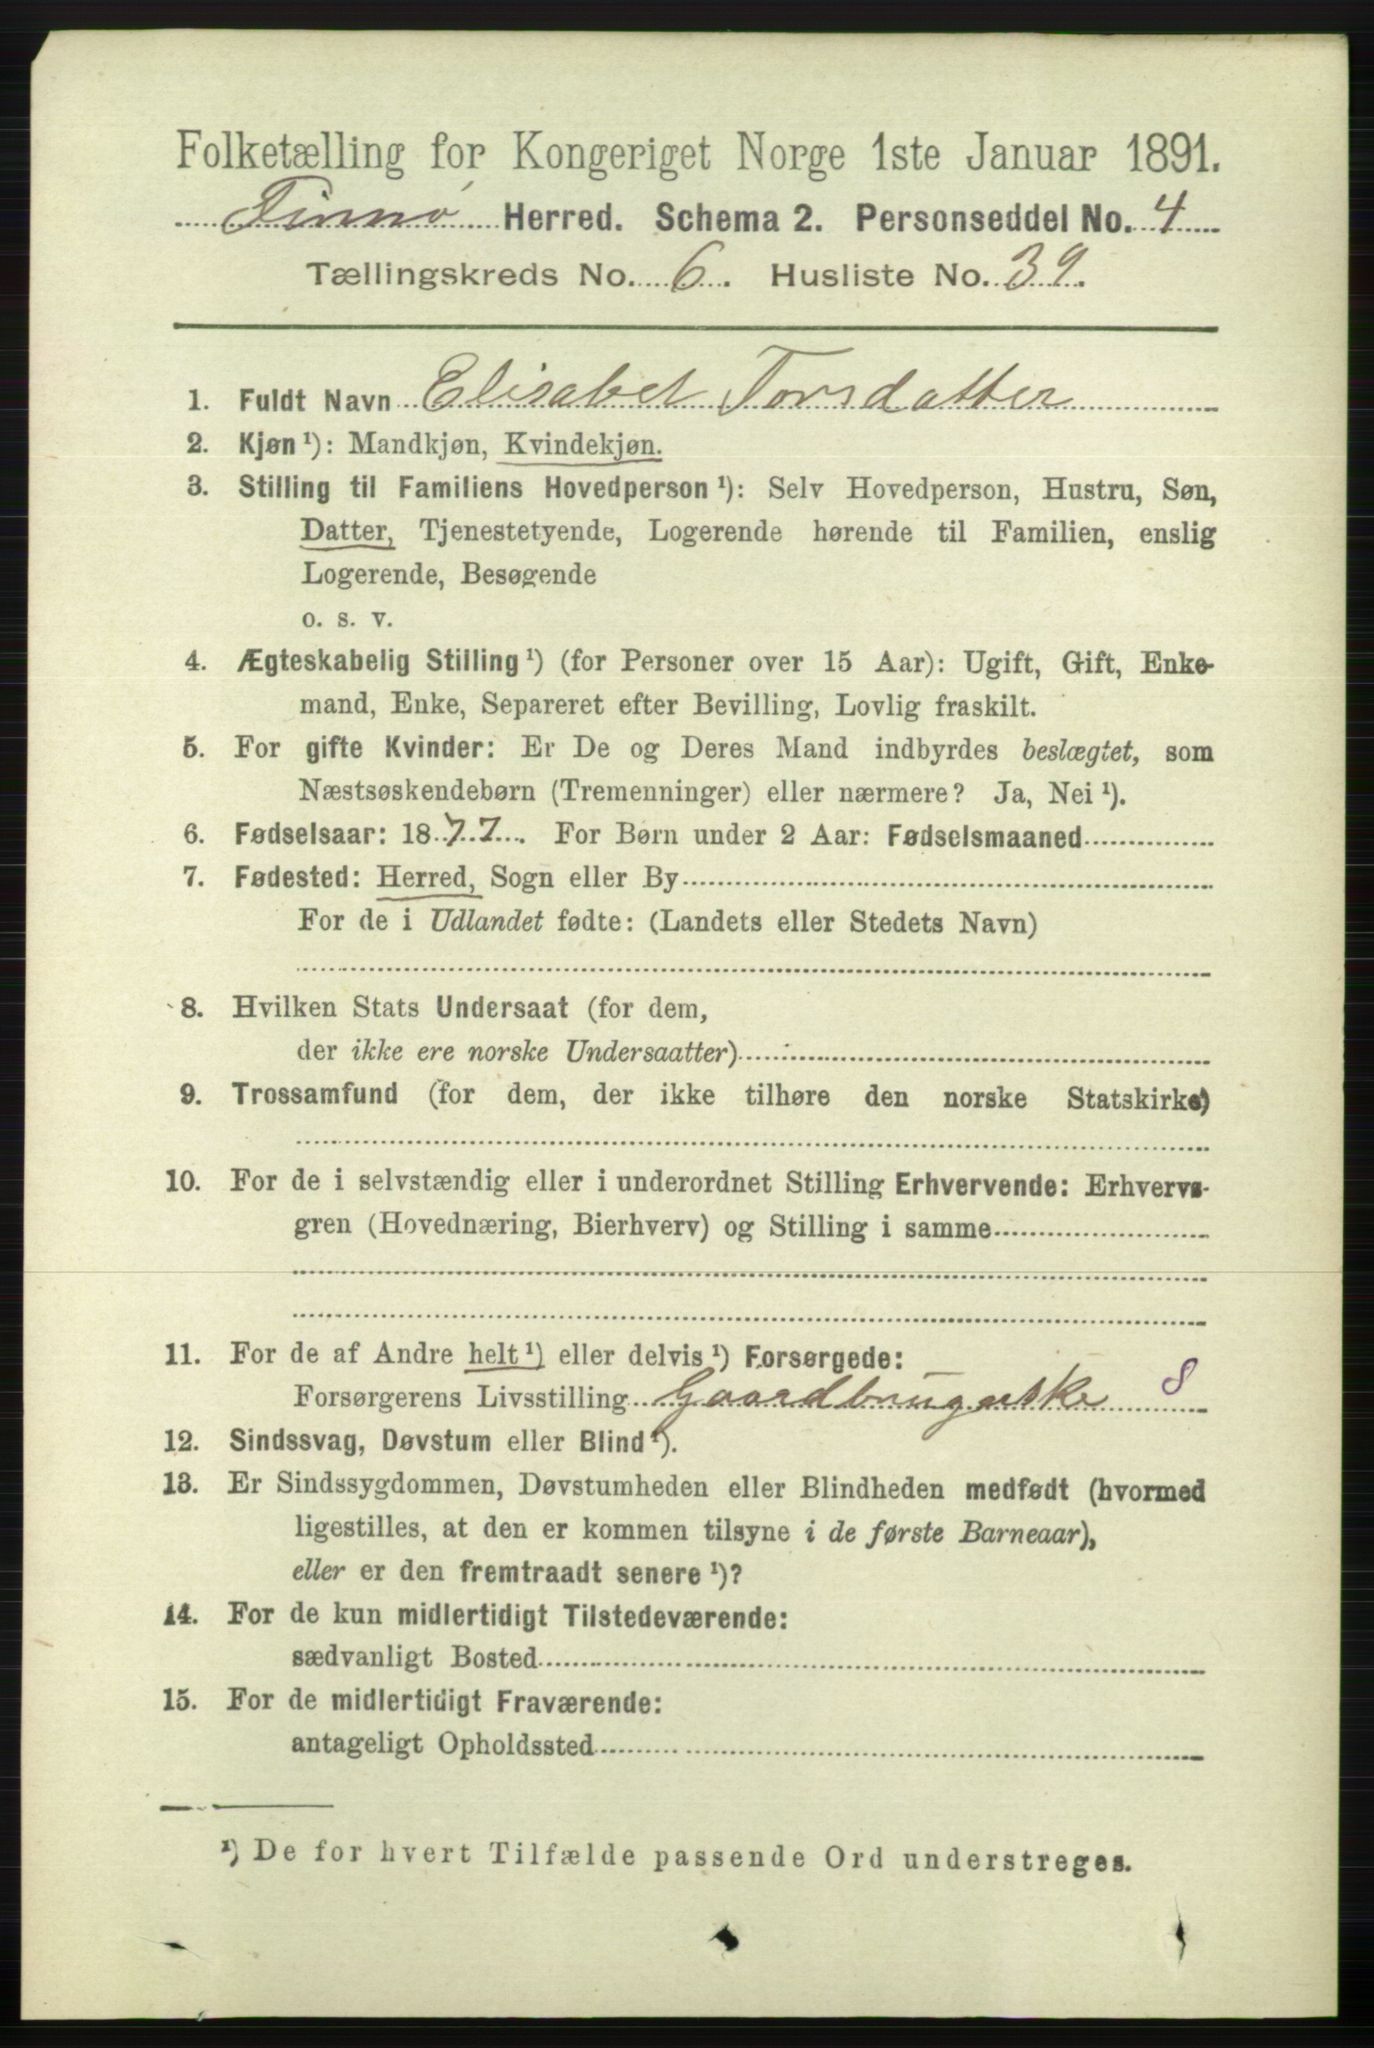 Folketælling for Kongeriget Norge 1ste Januar 1891.
Finnø Herred. Schema 2. Personseddel No. 4
Tællingskreds No. 6. Husliste No. 39.
1. Fuldt Navn Elisabet Torsdatter
2. Kjøn ¹): Mandkjøn, Kvindekjøn.
3. Stilling til Familiens Hovedperson ¹): Selv Hovedperson, Hustru, Søn,
Datter, Tjenestetyende, Logerende hørende til Familien, enslig
Logerende, Besøgende
o. s. v.
4. Ægteskabelig Stilling ¹) (for Personer over 15 Aar): Ugift, Gift, Enke-
mand, Enke, Separeret efter Bevilling, Lovlig fraskilt.
5. For gifte Kvinder: Er De og Deres Mand indbyrdes beslægtet, som
Næstsøskendebørn (Tremenninger) eller nærmere? Ja, Nei ¹).
6. Fødselsaar: 1877. For Børn under 2 Aar: Fødselsmaaned
7. Fødested: Herred, Sogn eller By
For de i Udlandet fødte: (Landets eller Stedets Navn)
8. Hvilken Stats Undersaat (for dem,
der ikke ere norske Undersaatter)
9. Trossamfund (for dem, der ikke tilhøre den norske Statskirke)
10. For de i selvstændig eller i underordnet Stilling Erhvervende: Erhvervs-
gren (Hovednæring, Bierhverv) og Stilling i samme
11. For de af Andre helt ¹) eller delvis ¹) Forsørgede:
Forsørgerens Livsstilling Gaardbrugerske 8
12. Sindssvag, Døvstum eller Blind ¹).
13. Er Sindssygdommen, Døvstumheden eller Blindheden medfødt (hvormed
ligestilles, at den er kommen tilsyne i de første Barneaar),
eller er den fremtraadt senere ¹)?
14. For de kun midlertidigt Tilstedeværende:
sædvanligt Bosted
15. For de midlertidigt Fraværende:
antageligt Opholdssted
¹) De for hvert Tilfælde passende Ord understreges.